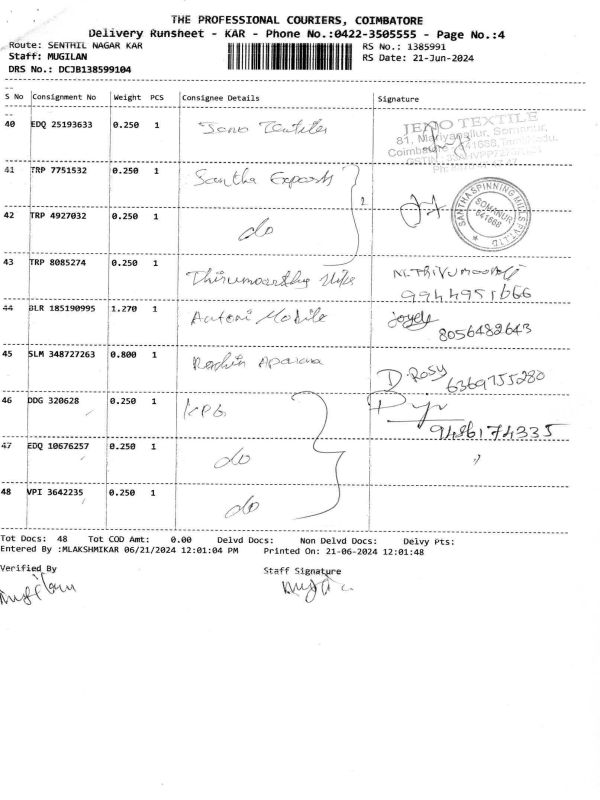 THE PROFESSIONAL COURIERS, COIMBATORE
Delivery Runsheet - KAR - Phone No.:0422-3505555 - Page No.:4
Route: SENTHIL NAGAR KAR RS No.: 1385991
Staff: MUGILAN RS Date: 21-Jun-2024
DRS No.: DCJB138599104
S No Consignment No Weight PCS Consignee Details Signature
40 EDQ 25193633 0.250 1 Jeno Textiles JENO TEXTILE
81, Somanur,
Coimbatore 641668,
41 TRP 7751532 0.250 1 Santha Exports
SANTHA SPINNING MILLS PVT LTD
SOMANUR
641668
42 TRP 4927032 0.250 1 do
43 TRP 8085274 0.250 1
9944951666
44 BLR 185190995 1.270 1 Antoni Mobile
8056482643
45 SLM 348727263 0.800 1 D. Rosy
6369755280
46 DDG 320628 0.250 1 KPG
9486174335
47 EDQ 10676257 0.250 1 do
48 VPI 3642235 0.250 1 do
Tot Docs: 48 Tot COD Amt: 0.00 Delvd Docs: Non Delvd Docs: Delvy Pts:
Entered By :MLAKSHMIKAR 06/21/2024 12:01:04 PM Printed On: 21-06-2024 12:01:48
Verified By Staff Signature